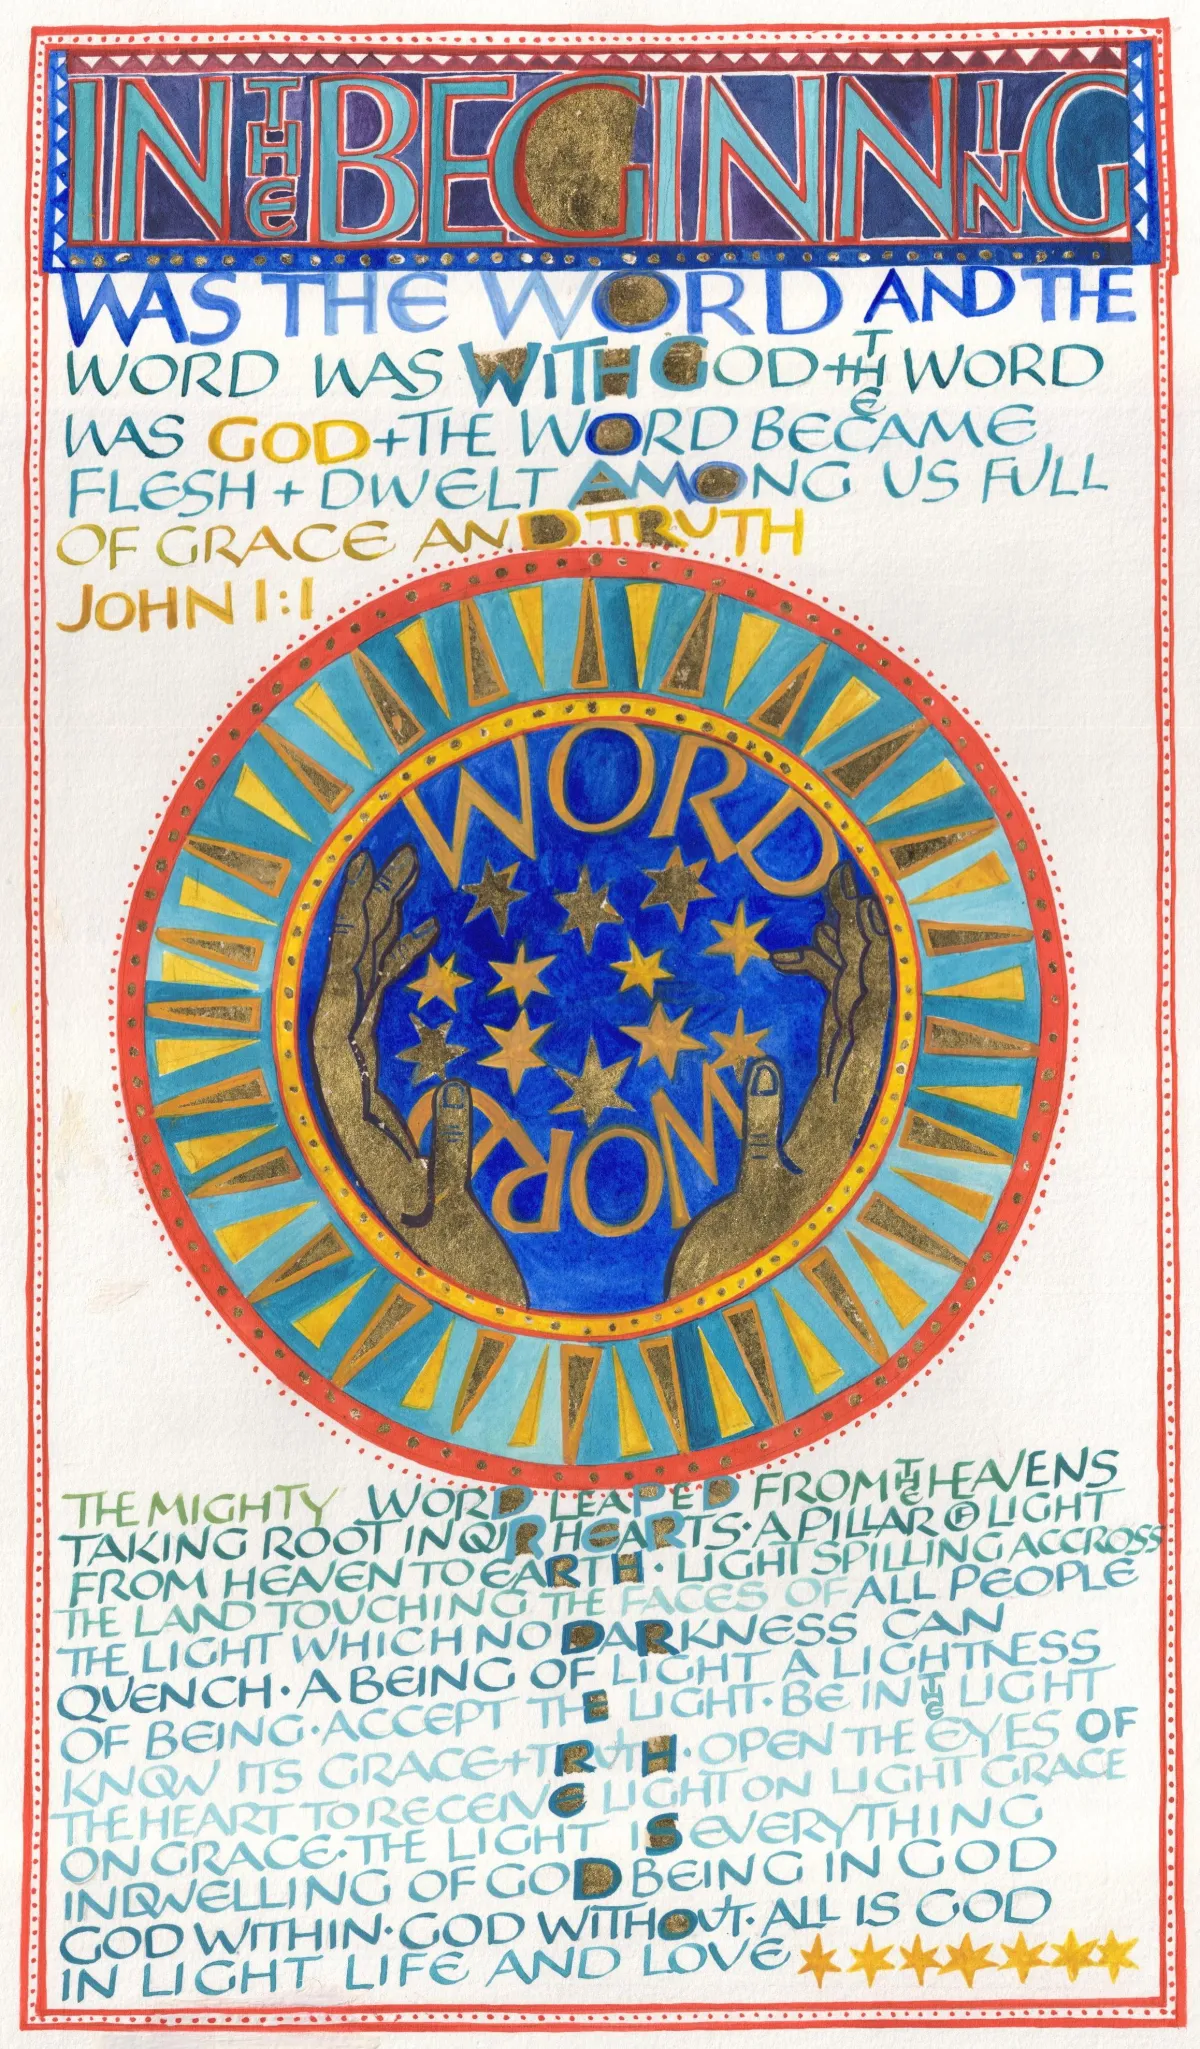 IN THE BEGINNING
WAS THE WORD AND THE
WORD WAS WITH GOD + THE WORD
WAS GOD + THE WORD BECAME
FLESH + DWELT AMONG US FULL
OF GRACE AND TRUTH
JOHN 1:1
WORD
WORD
THE MIGHTY WORD LEAPED FROM THE HEAVENS
TAKING ROOT IN OUR HEARTS · A PILLAR OF LIGHT
FROM HEAVEN TO EARTH · LIGHT SPILLING ACCROSS
THE LAND TOUCHING THE FACES OF ALL PEOPLE
THE LIGHT WHICH NO DARKNESS CAN
QUENCH · A BEING OF LIGHT A LIGHTNESS
OF BEING · ACCEPT THE LIGHT · BE IN THE LIGHT
KNOW ITS GRACE + TRUTH · OPEN THE EYES OF
THE HEART TO RECEIVE LIGHT ON LIGHT GRACE
ON GRACE · THE LIGHT IS EVERYTHING
INDWELLING OF GOD BEING IN GOD
GOD WITHIN · GOD WITHOUT · ALL IS GOD
IN LIGHT LIFE AND LOVE